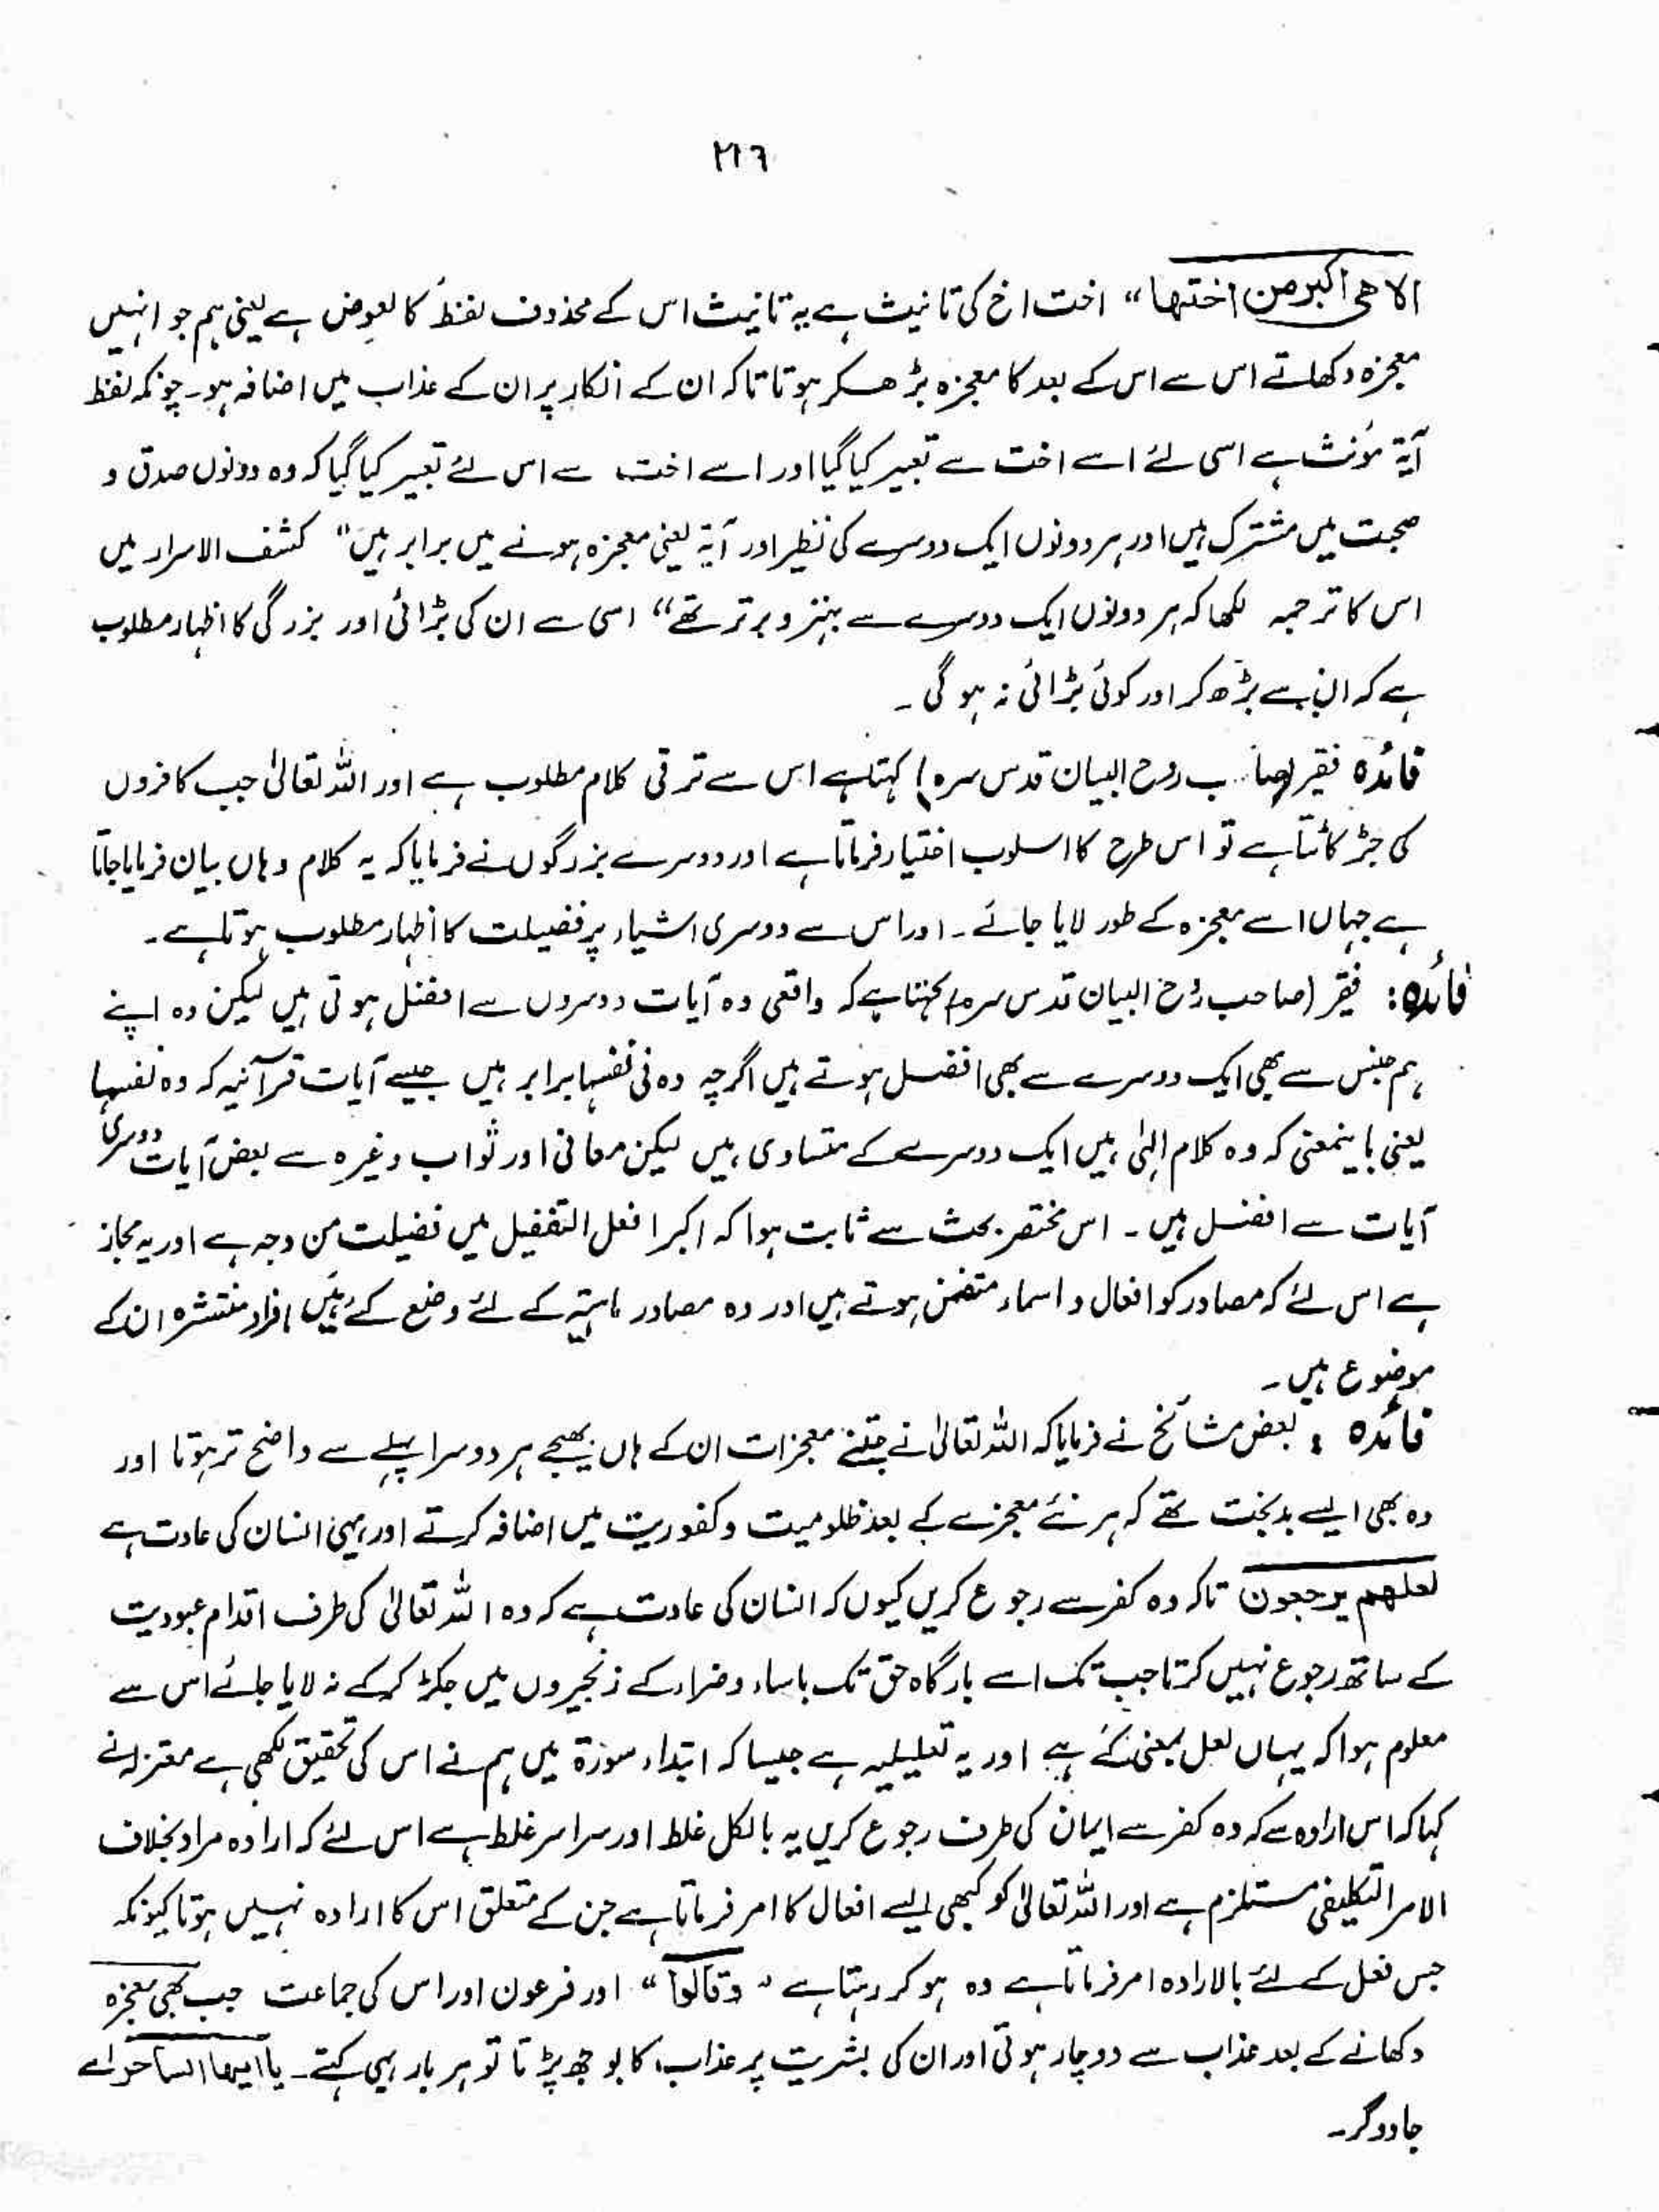 ٢١٦
الاھی اکبر من اختھا“ اخت اخ کی تانیث ہے یہ تانیث اس کے محذوف لفظ کا بعوض ہے یعنی ہم جو انہیں
معجزہ دکھلاتے اس سے اس کے بعد کا معجزہ بڑھ سکر ہوتا تاکہ ان کے انکار پر ان کے عذاب میں اضافہ ہو۔ چونکہ لفظ
آیۃ مؤنث ہے اسی لئے اسے اخت سے تعبیر کیا گیا اور اسے اخت سے اس لئے تعبیر کیا گیا کہ وہ دونوں صدق و
صحبت میں مشترک ہیں اور ہر دونوں ایک دوسرے کی نظیر اور آیۃ یعنی معجزہ ہونے میں برابر ہیں“ کشف الاسرار میں
اس کا ترجمہ لکھا کہ ہر دونوں ایک دوسرے سے بہتر و برتر تھے“ اسی سے ان کی بڑائی اور بزرگی کا اظہار مطلوب
ہے کہ ان سے بڑھ کر اور کوئی بڑائی نہ ہو گی۔
فائدہ فقیر (صاحب روح البیان قدس سرہ) کہتا ہے اس سے ترقی کلام مطلوب ہے اور اللہ تعالیٰ جب کافروں
کی جڑ کاٹتا ہے تو اس طرح کا اسلوب اختیار فرماتا ہے اور دوسرے بزرگوں نے فرمایا کہ یہ کلام وہاں بیان فرمایا جاتا
ہے جہاں اسے معجزہ کے طور لایا جائے۔ اور اس سے دوسری اشیاء پر فضیلت کا اظہار مطلوب ہوتا ہے۔
فائدہ: فقیر (صاحب روح البیان قدس سرہ) کہتا ہے کہ واقعی وہ آیات دوسروں سے افضل ہوتی ہیں لیکن وہ اپنے
ہم جنس سے بھی ایک دوسرے سے بھی افضل ہوتے ہیں اگرچہ وہ فی نفسہا برابر ہیں جیسے آیات قرآنیہ کہ وہ نفسہا
یعنی باینمعنی کہ وہ کلام الٰہی ہیں ایک دوسرے کے متساوی ہیں لیکن معانی اور ثواب وغیرہ سے بعض آیات دوسری
آیات سے افضل ہیں۔ اس مختصر بحث سے ثابت ہوا کہ اکبر افعل التفضیل میں فضیلت من وجہ ہے اور یہ مجاز
ہے اس لئے کہ مصادر کو افعال و اسماء متضمن ہوتے ہیں اور وہ مصادر ماہیۃ کے لئے وضع کئے ہیں افراد منتشرہ ان کے
موضوع ہیں۔
فائدہ : بعض مشائخ نے فرمایا کہ اللہ تعالیٰ نے جتنے معجزات ان کے ہاں بھیجے ہر دوسرا پہلے سے واضح تر ہوتا اور
وہ بھی ایسے بدبخت تھے کہ ہر نئے معجزے کے بعد ظلومیت و کفوریت میں اضافہ کرتے اور یہی انسان کی عادت ہے
لعلھم یرجعون تاکہ وہ کفر سے رجوع کریں کیوں کہ انسان کی عادت ہے کہ وہ اللہ تعالیٰ کی طرف اقدام عبودیت
کے ساتھ رجوع نہیں کرتا جب تک اسے بارگاہ حق تک باساء و ضراء کے زنجیروں میں جکڑ کر کے نہ لایا جائے اس سے
معلوم ہوا کہ یہاں لعل بمعنی کے ہے اور یہ تعلیلیہ ہے جیسا کہ ابتداء سورۃ میں ہم نے اس کی تحقیق لکھی ہے معتزلہ نے
کہا کہ اس ارادہ سے کہ وہ کفر سے ایمان کی طرف رجوع کریں یہ بالکل غلط اور سراسر غلط ہے اس لئے کہ ارادہ مراد بخلاف
الامر التکلیفی مستلزم ہے اور اللہ تعالیٰ کو کبھی ایسے افعال کا امر فرماتا ہے جن کے متعلق اس کا ارادہ نہیں ہوتا کیونکہ
جس فعل کے لئے بالارادہ امر فرماتا ہے وہ ہو کر رہتا ہے ”وقالوا“ اور فرعون اور اس کی جماعت جب بھی معجزہ
دکھانے کے بعد عذاب سے دوچار ہوتی اور ان کی بشریت پر عذاب کا بوجھ پڑتا تو ہر بار یہی کہتے۔ یا ایھا الساحر اے
جادوگر۔